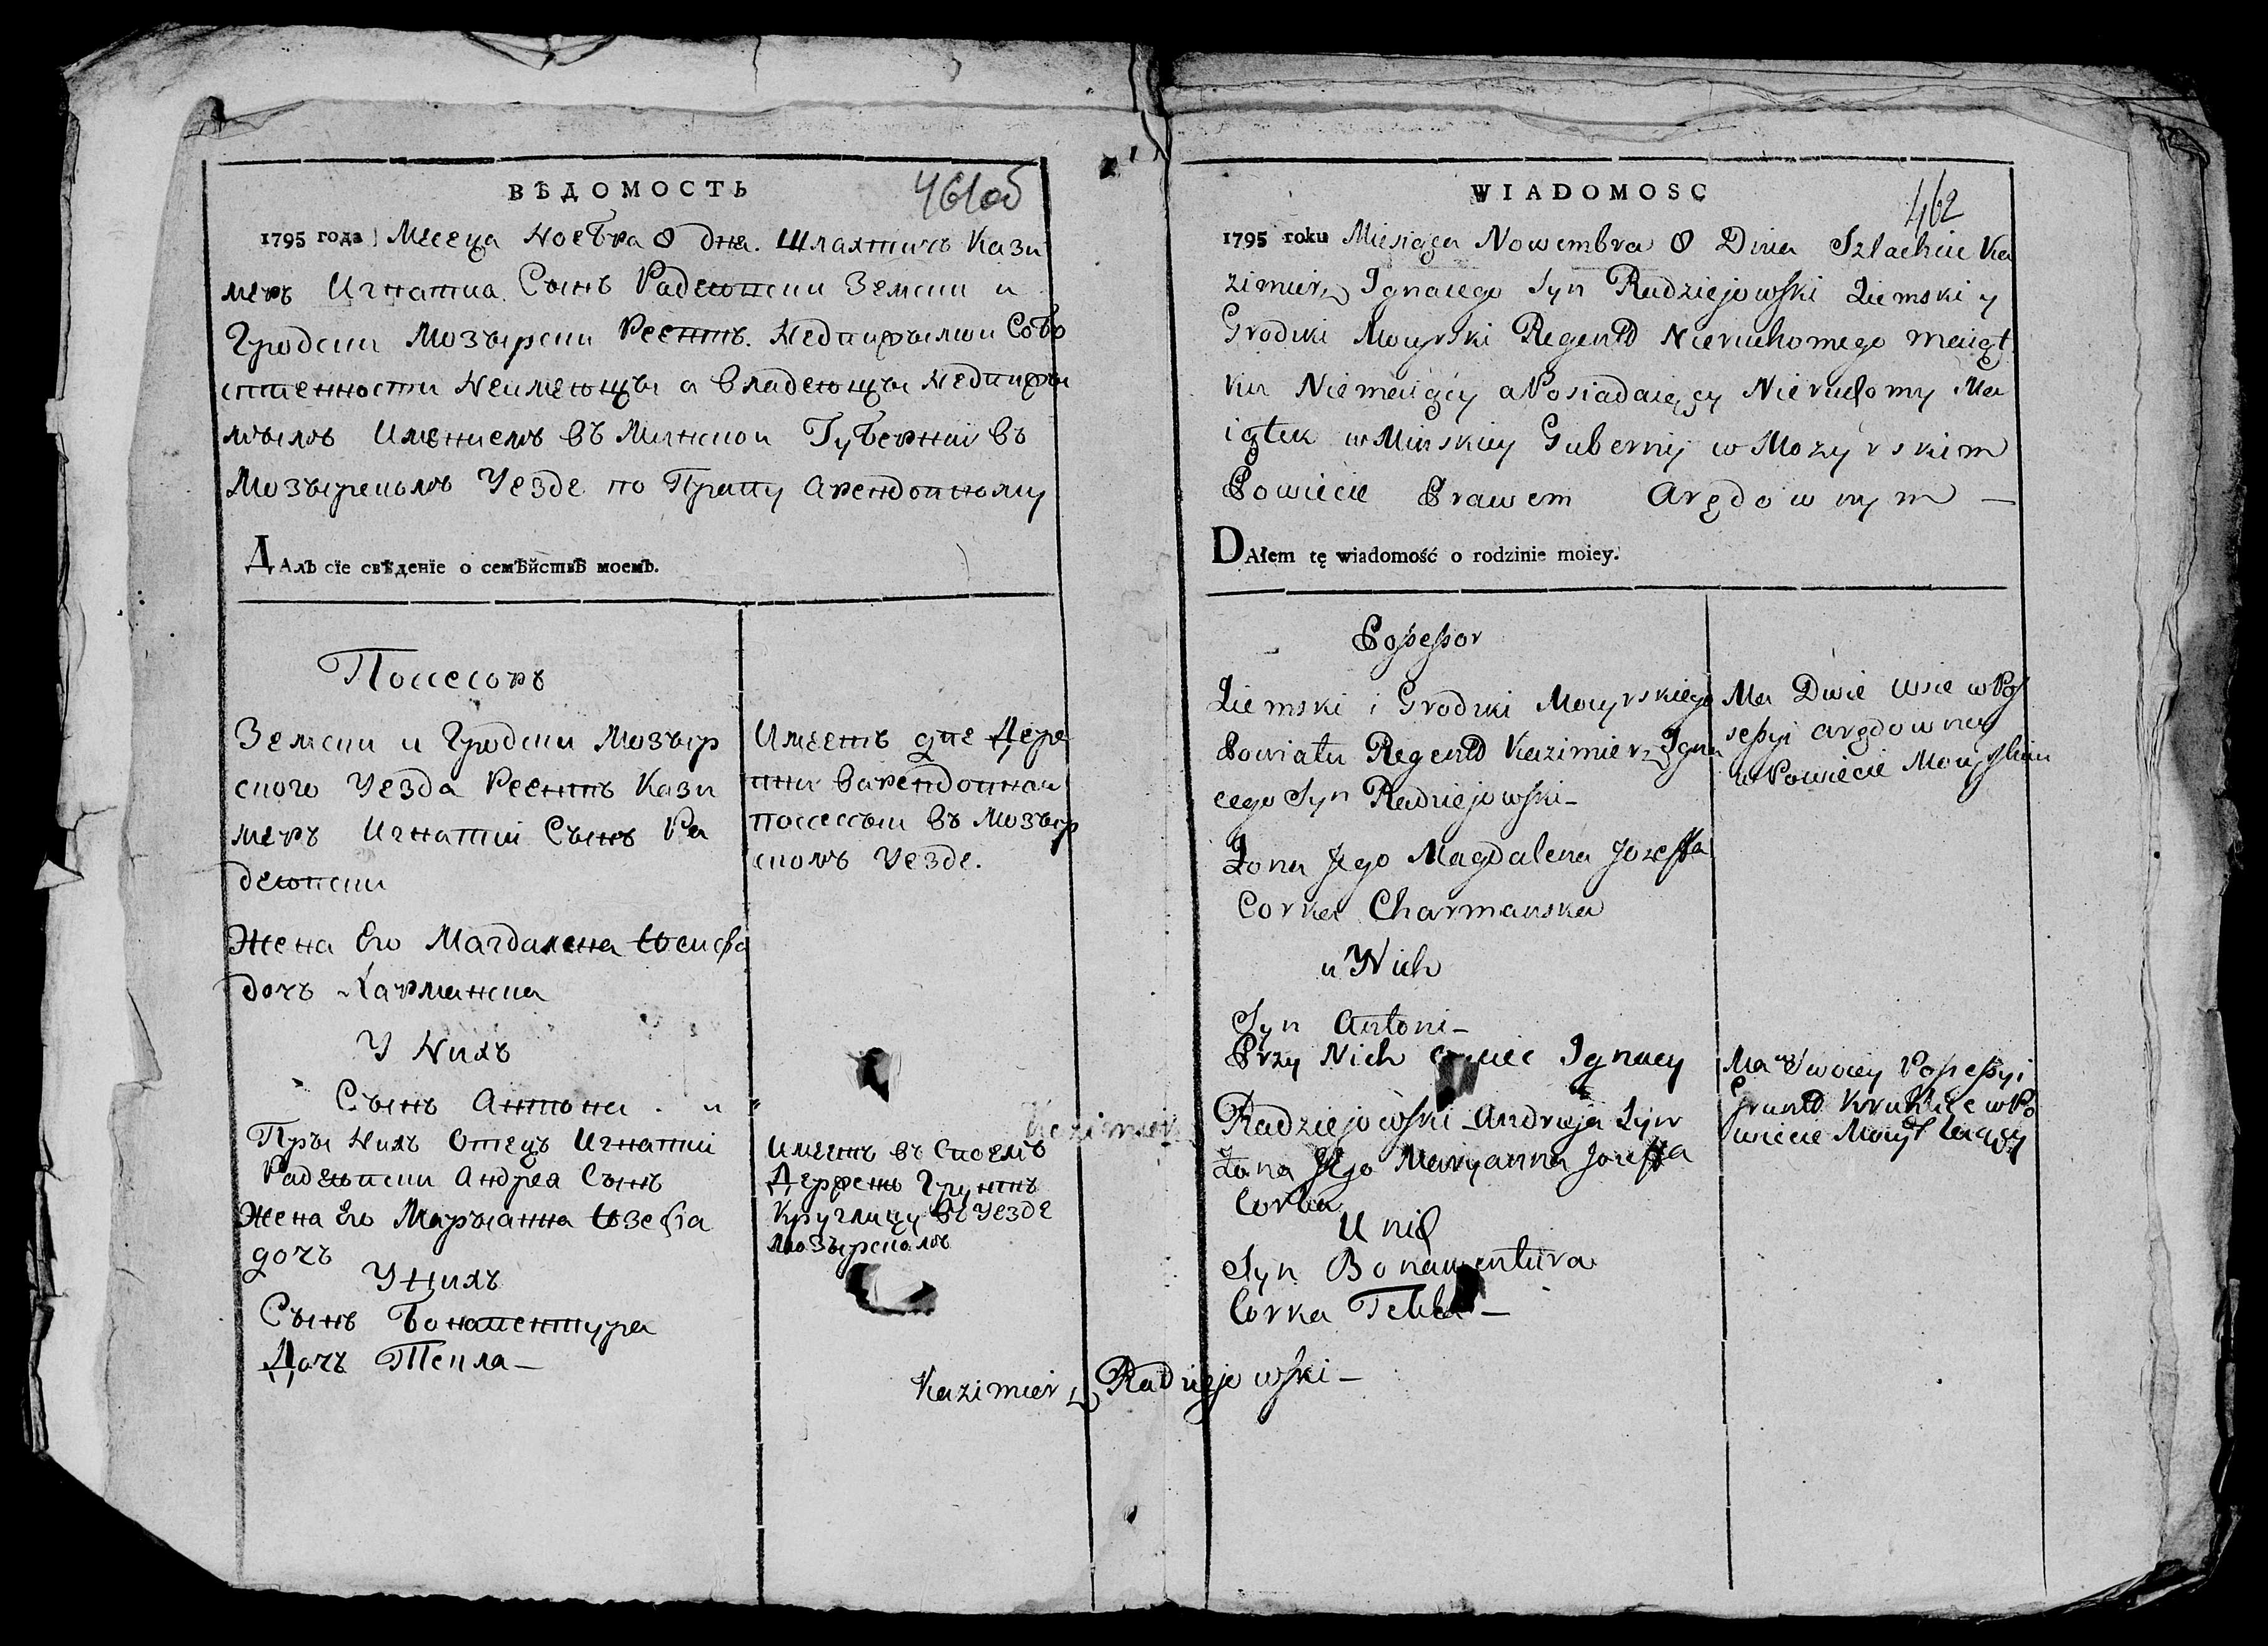 ВѢДОМОСТЬ
461об
1795 года Месеца Ноебра 8 дня. Шляхтичъ Кази
меръ Игнатиа Сынъ Радеювски Земски и
Гродски Мозырски Реентъ. Недвижымои Собъ
ственности Неимеющы а владеющы Недвижы
мымъ Имениемъ въ Минскои Губернии въ
Мозырскомъ Уезде по Праву Арендовному
ДАлъ сїе свѣденїе о семѣйствѣ моемъ.
Поссесоръ
Земски и Гродски Мозыр
ского Уезда Реентъ Кази
меръ Игнатии Сынъ Ра
деювски
Жена Его Магдалена Юсифа
дочъ Хармански
У Нихъ
Сынъ Антони и
Пры Нихъ Отецъ Игнатии
Радеювски Андрея Сынъ
Жена Его Марыанна Юзефа
дочъ
У Нихъ
Сынъ Бонавентура
Дочъ Текла —
Имеетъ две Дере
вни варендовнаи
поссессыи въ Мозыр
скомъ Уезде.
Имеетъ въ Своемъ
Грунтъ
Круглицу въ Уезде
Мозырскомъ
Kazimierz Radziejowski —
WIADOMOSC
462
1795 roku Miesiąca Nowembra 8 Dnia Szlachcic Ka
zimierz Ignacego Syn Radziejowski Ziemski y
Grodzki Mozyrski Regent Nieruchomego maiąt
ku Niemaiący a Posiadaiący Nieruchomy Ma
iątek w Minskiey Gubernij w Mozyrskim
Powiecie Prawem Arędownym —
DAłem tę wiadomość o rodzinie moiey.
Possessor
Ziemski i Grodzki Mozyrskiego
Powiatu Regent Kazimierz Igna
cego Syn Radziejowski —
Żona Jego Magdalena Jozeffa
Corka Charmanska
u Nich
Syn Antoni —
Przy Nich Ociec Ignacy
Radziejowski Andrzeja Syn
Żona Jego Maryanna Jozeffa
Corka
U nich
Syn Bonawentura
Corka Tekla —
Ma Dwie wsie w Pos
sessyi arędowney
w Powiecie Mozyrskim
Ma w Swoiey Possessyi
Grunt Kruhlice w Po
wiecie Mozyr leżący